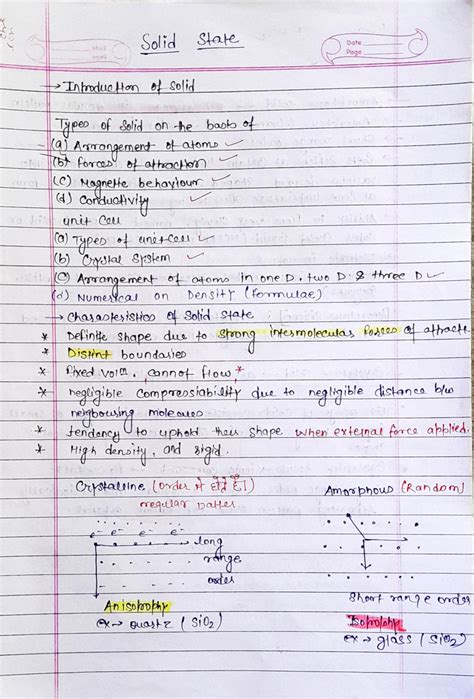 Solid State
Date
Page
→ Introduction of Solid
Types of Solid on the basis of
(a) Arrangement of atoms ✓
(b) forces of attraction ✓
(c) Magnetic behaviour ✓
(d) Conductivity ✓
unit cell
(a) Types of unit cell ✓
(b) Crystal System ✓
(c) Arrangement of atoms in one D. two D. & three D ✓
(d) Numerical on Density (formulae)
→ Characteristics of Solid State
* Definite shape due to strong intermolecular forces of attracte
* Distint boundaries
* fixed Volm. cannot flow *
* negligible compressiability due to negligible distance b/w
neigbousing molecues
* tendency to uphold their shape when external force applied.
* High density, and rigid.
Crystalline (order में होते हैं।) Amorphous (Random)
regular patter
e- e- e- → long
range
order
short range order
Anisotrophy Isotrophy
ex → quartz (SiO2) ex → glass (SiO2)